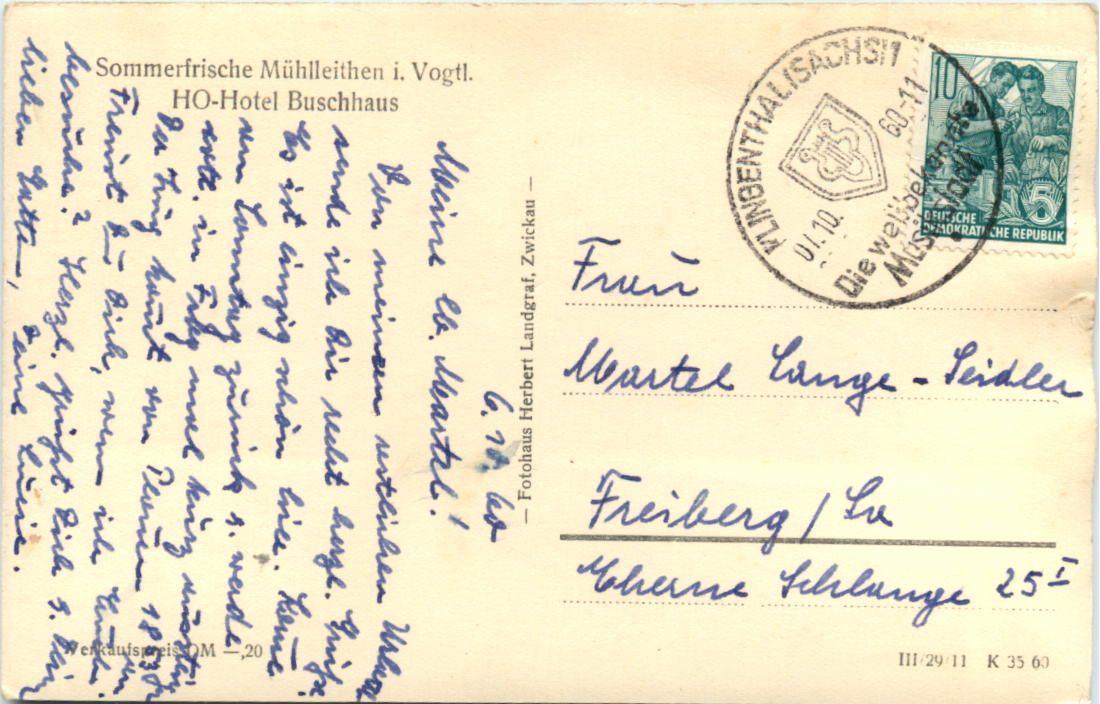 Sommerfrische Mühlleithen i. Vogtl.
HO-Hotel Buschhaus
6. 10. 60
Meine lb. Martel!
Von meinem restlichen Urlaub
sende ich Dir recht herzl. Grüße.
Es ist einzig schön hier. Komme
am Sonntag zurück u. werde
evtl. in Fbg mal kurz
Der Zug kommt von Plauen 18
Freust Du Dich, wenn ich Euch
besuche? Herzl. grüßt Dich u. Dein
lieben Gatten, Deine Luise.
Verkaufspreis DM —,20
— Fotohaus Herbert Landgraf, Zwickau —
KLINGENTHAL (SACHS) 1
07.10. 60-11
Die weltbekannte
Musikstadt
10
5
DEUTSCHE
DEMOKRATISCHE REPUBLIK
Frau
Martel Lange-Seidler
Freiberg / Sa
Eherne Schlange 25 I
III/29/11 K 35 60